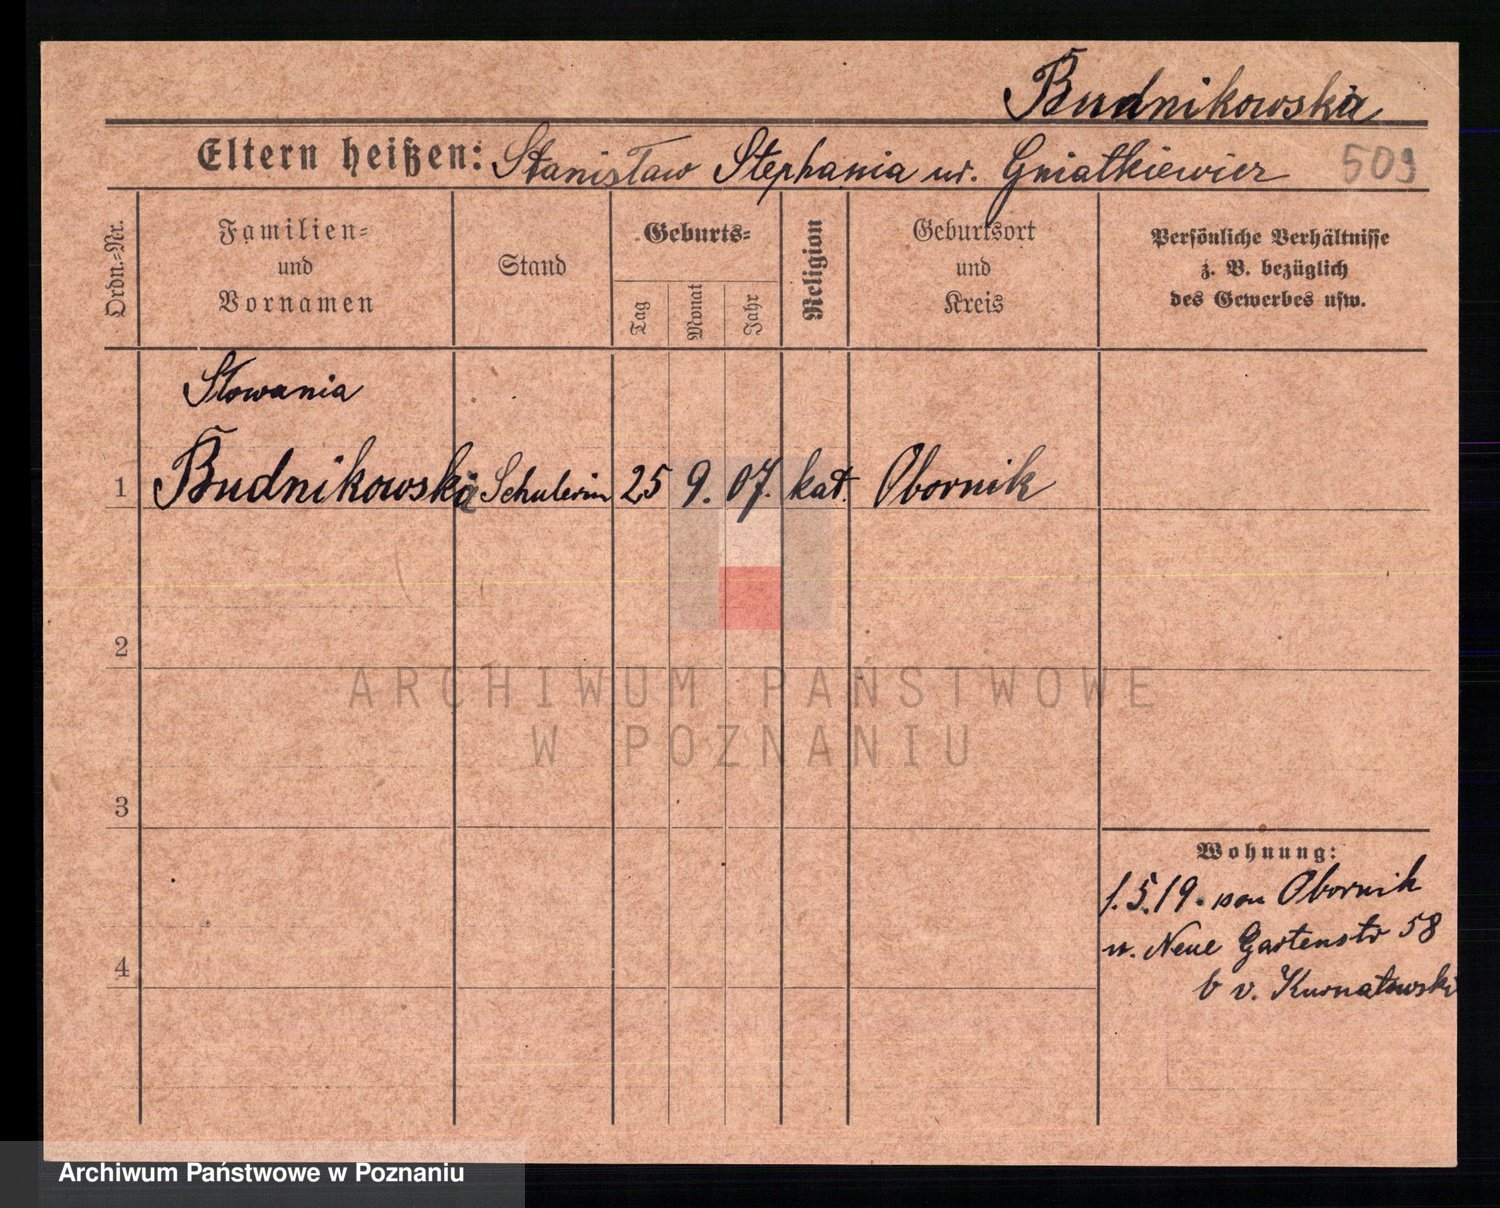 Budnikowska
Eltern heißen: Stanisław Stephania ur. Gniatkiewicz 509
Ordn.-Nr.
Familien-
und
Vornamen
Stand
Geburts-
Tag
Monat
Jahr
Religion
Geburtsort
und
Kreis
Persönliche Verhältnisse
z. B. bezüglich
des Gewerbes usw.
Słowania
1 Budnikowska Schulerin 25 9. 07. kat. Obornik
2
ARCHIWUM PAŃSTWOWE
W POZNANIU
3
Wohnung:
1.5.19. von Obornik
n. Neue Gartenstr 58
b v. Kurnatowski
4
Archiwum Państwowe w Poznaniu